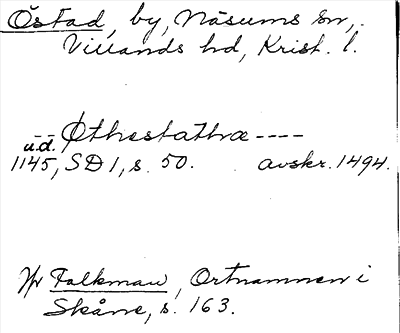 Östad, by, Näsums sn,
Villands hd, Krist. l.
-- Øthestathæ ----
u.d.
1145, SD 1, s. 50. avskr. 1494.
Hr Falkman, Ortnamnen i
Skåne, s. 163.